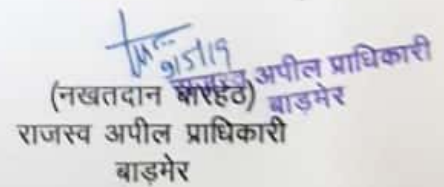 9/5/19
राजस्व अपील प्राधिकारी
बाड़मेर
(नखतदान बारहठ)
राजस्व अपील प्राधिकारी
बाड़मेर